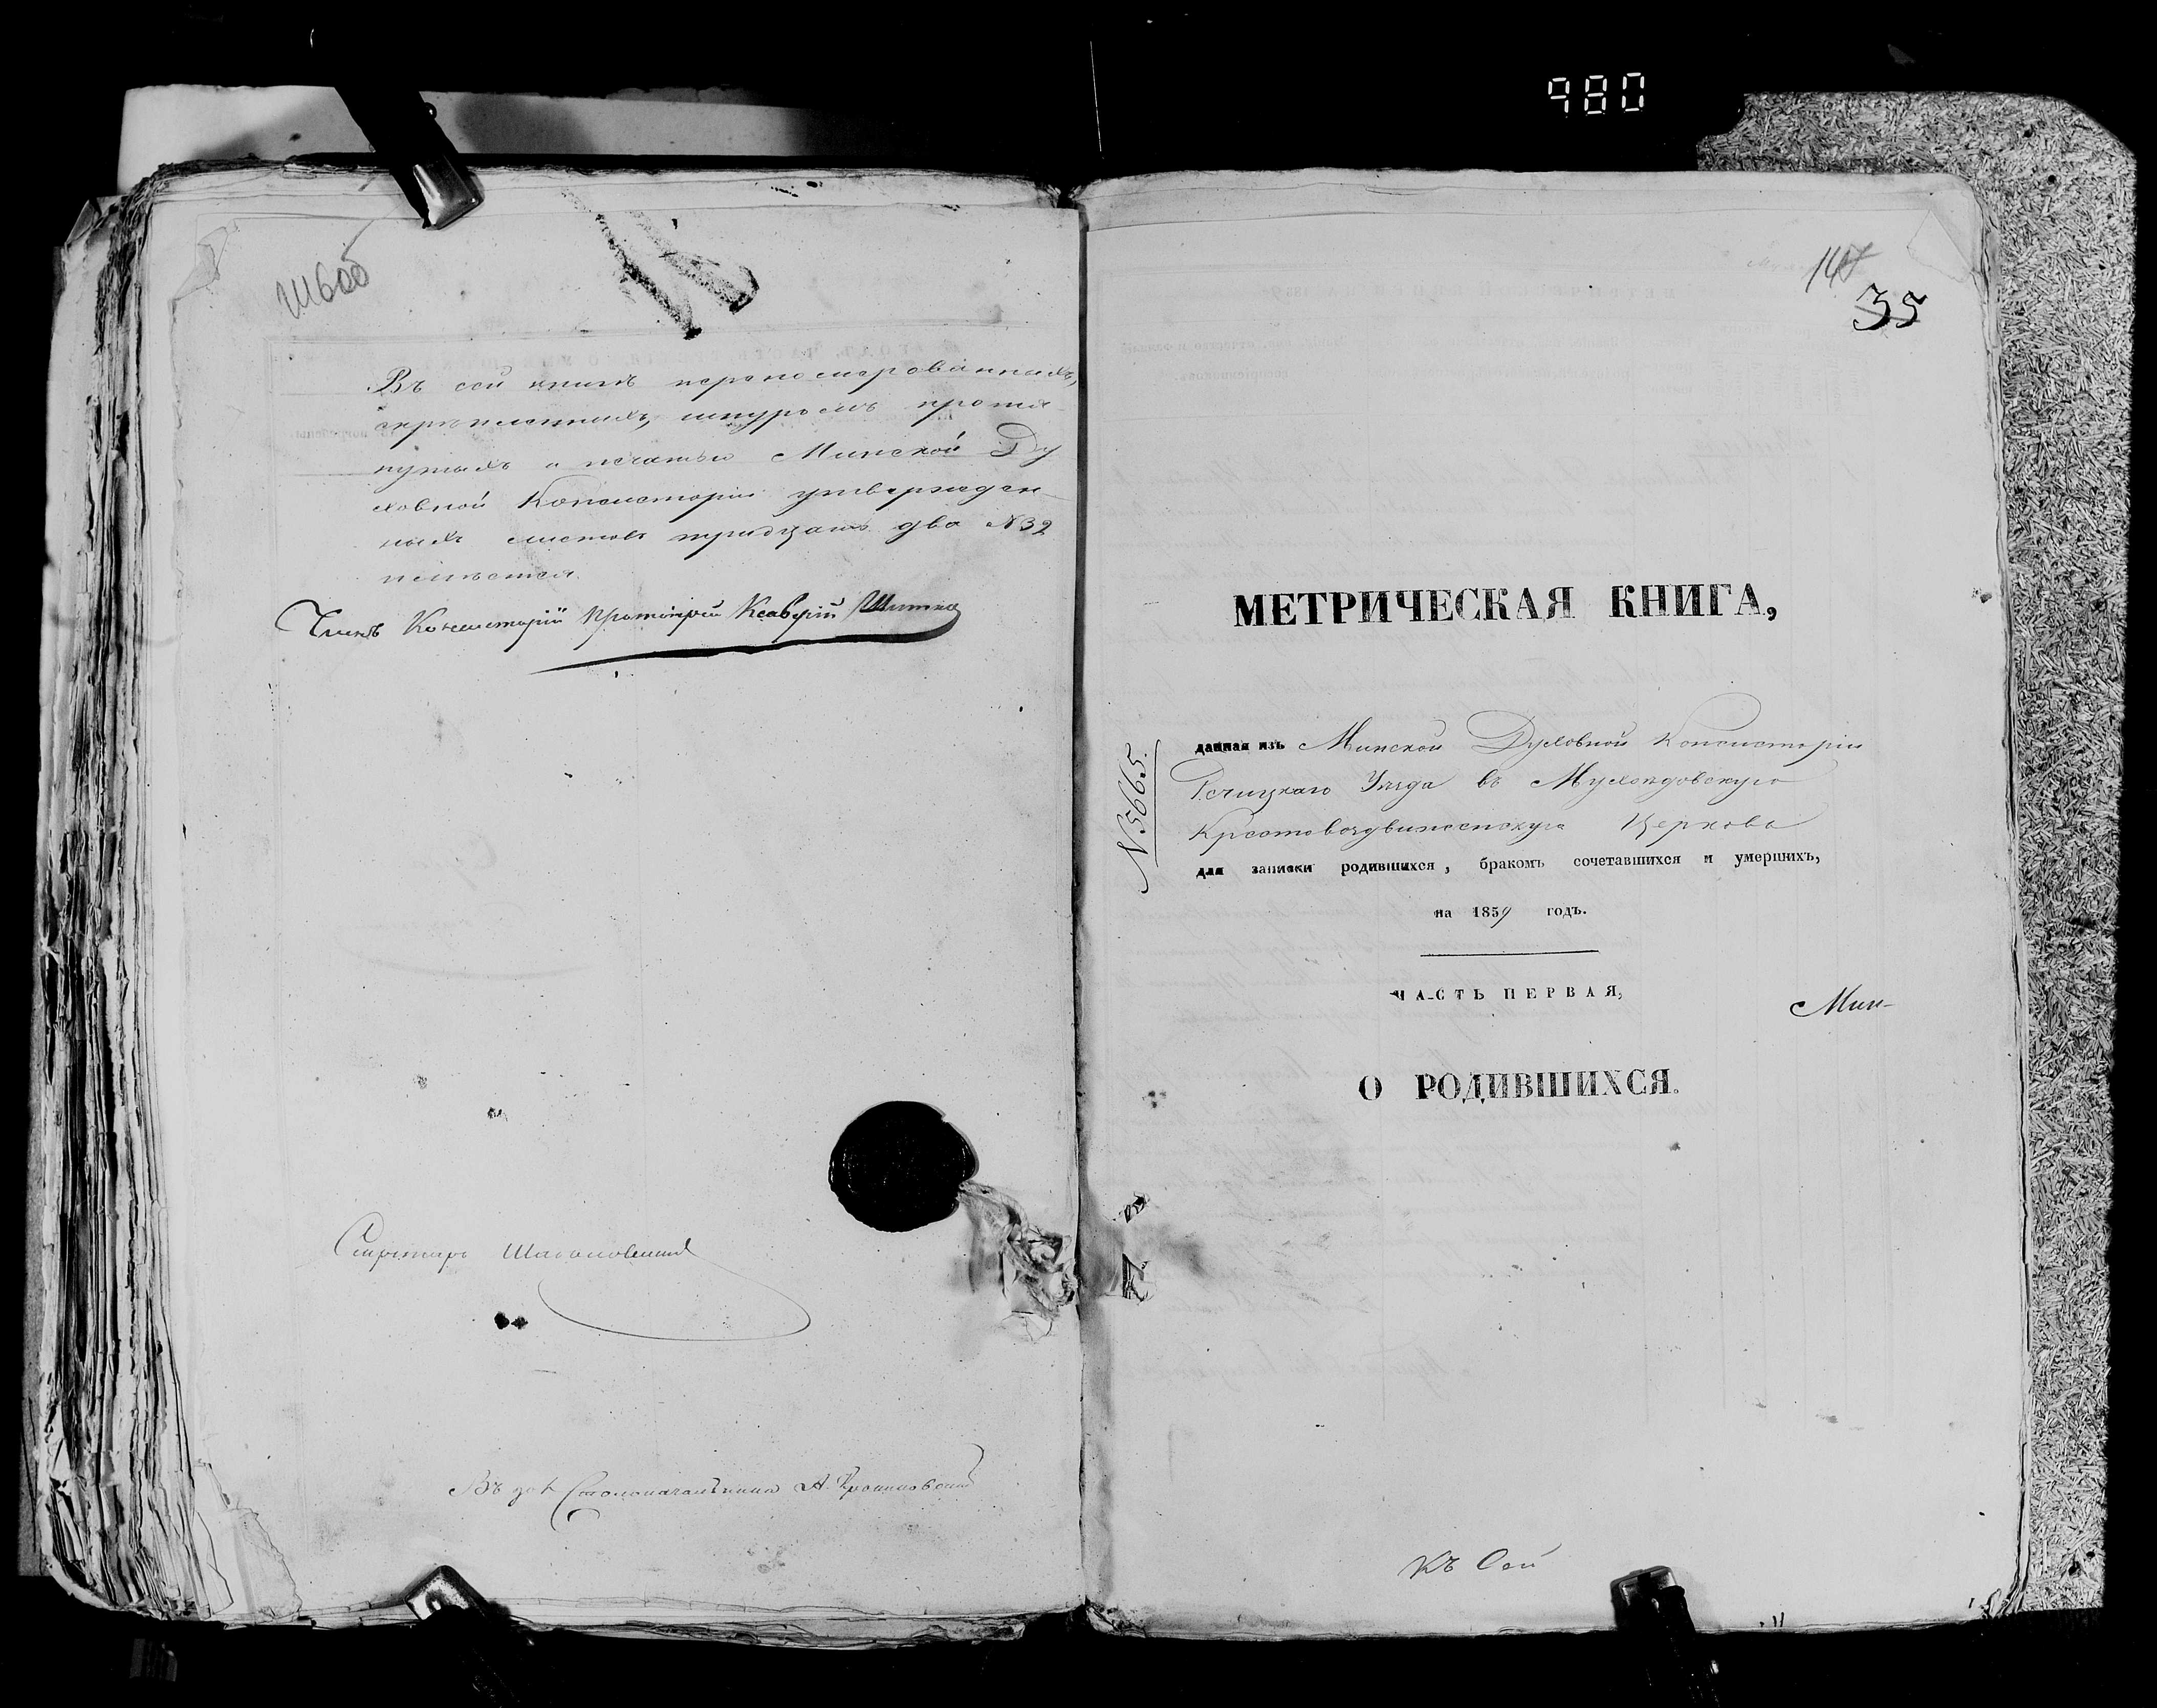 980
Въ сей книгѣ перенумерованныхъ,
скрѣпленныхъ, шнуромъ протя
нутыхъ и печатью Минской Ду
ховной Консисторіи утвержден-
ныхъ листовъ тридцать два №32
имѣется.
Членъ Консисторіи Протоіерей Ксаверій
Секретарь
Въ Столоначальника А.
35
МЕТРИЧЕСКАЯ КНИГА,
№5665.
данная изъ Минской Духовной Консисторіи
Речицкаго Уѣзда въ Мухоѣдовскую
Крестовоздвиженскую Церковь
для записки родившихся, бракомъ сочетавшихся и умершихъ,
на 1859 годъ.
ЧАСТЬ ПЕРВАЯ,
Мин-
О РОДИВШИХСЯ.
Къ Сей